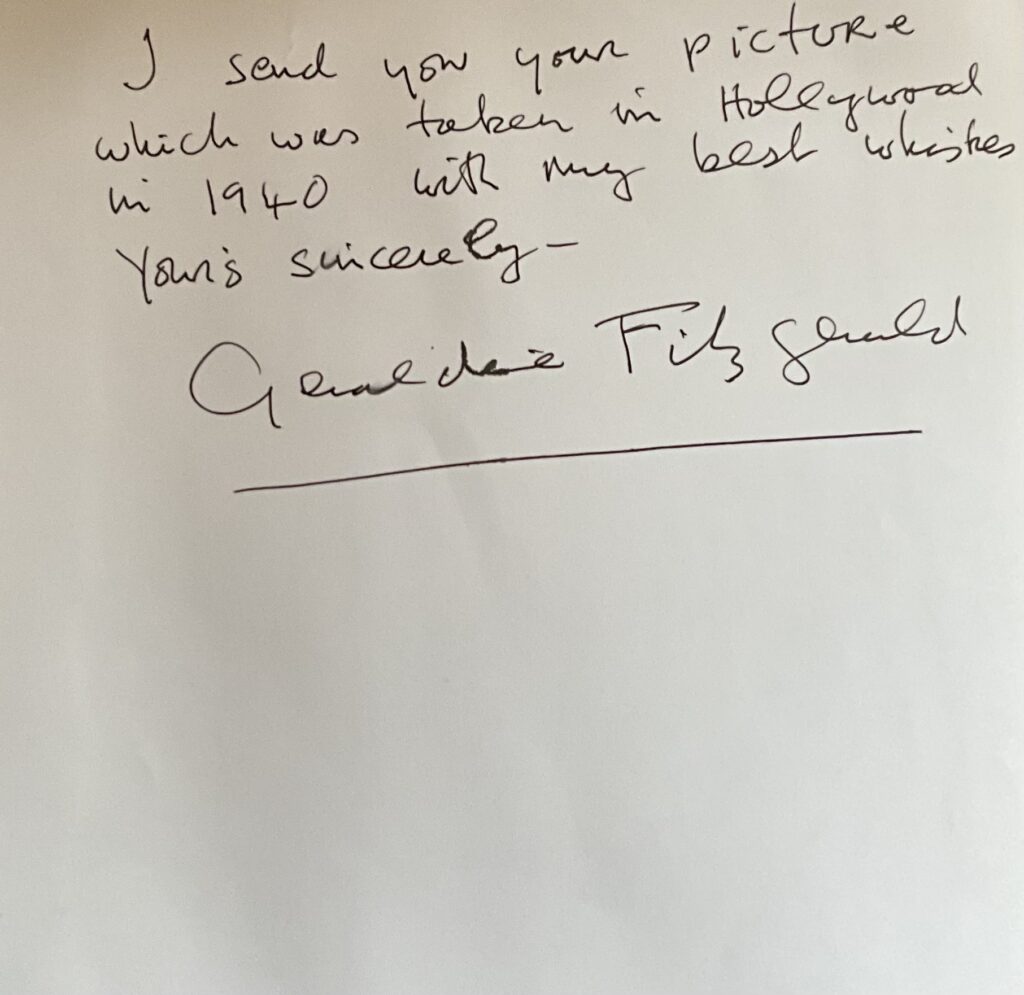 I send you your picture
which was taken in Hollywood
in 1940 with my best whishes
Your's sincerely –
Geraldine Fitzgerald